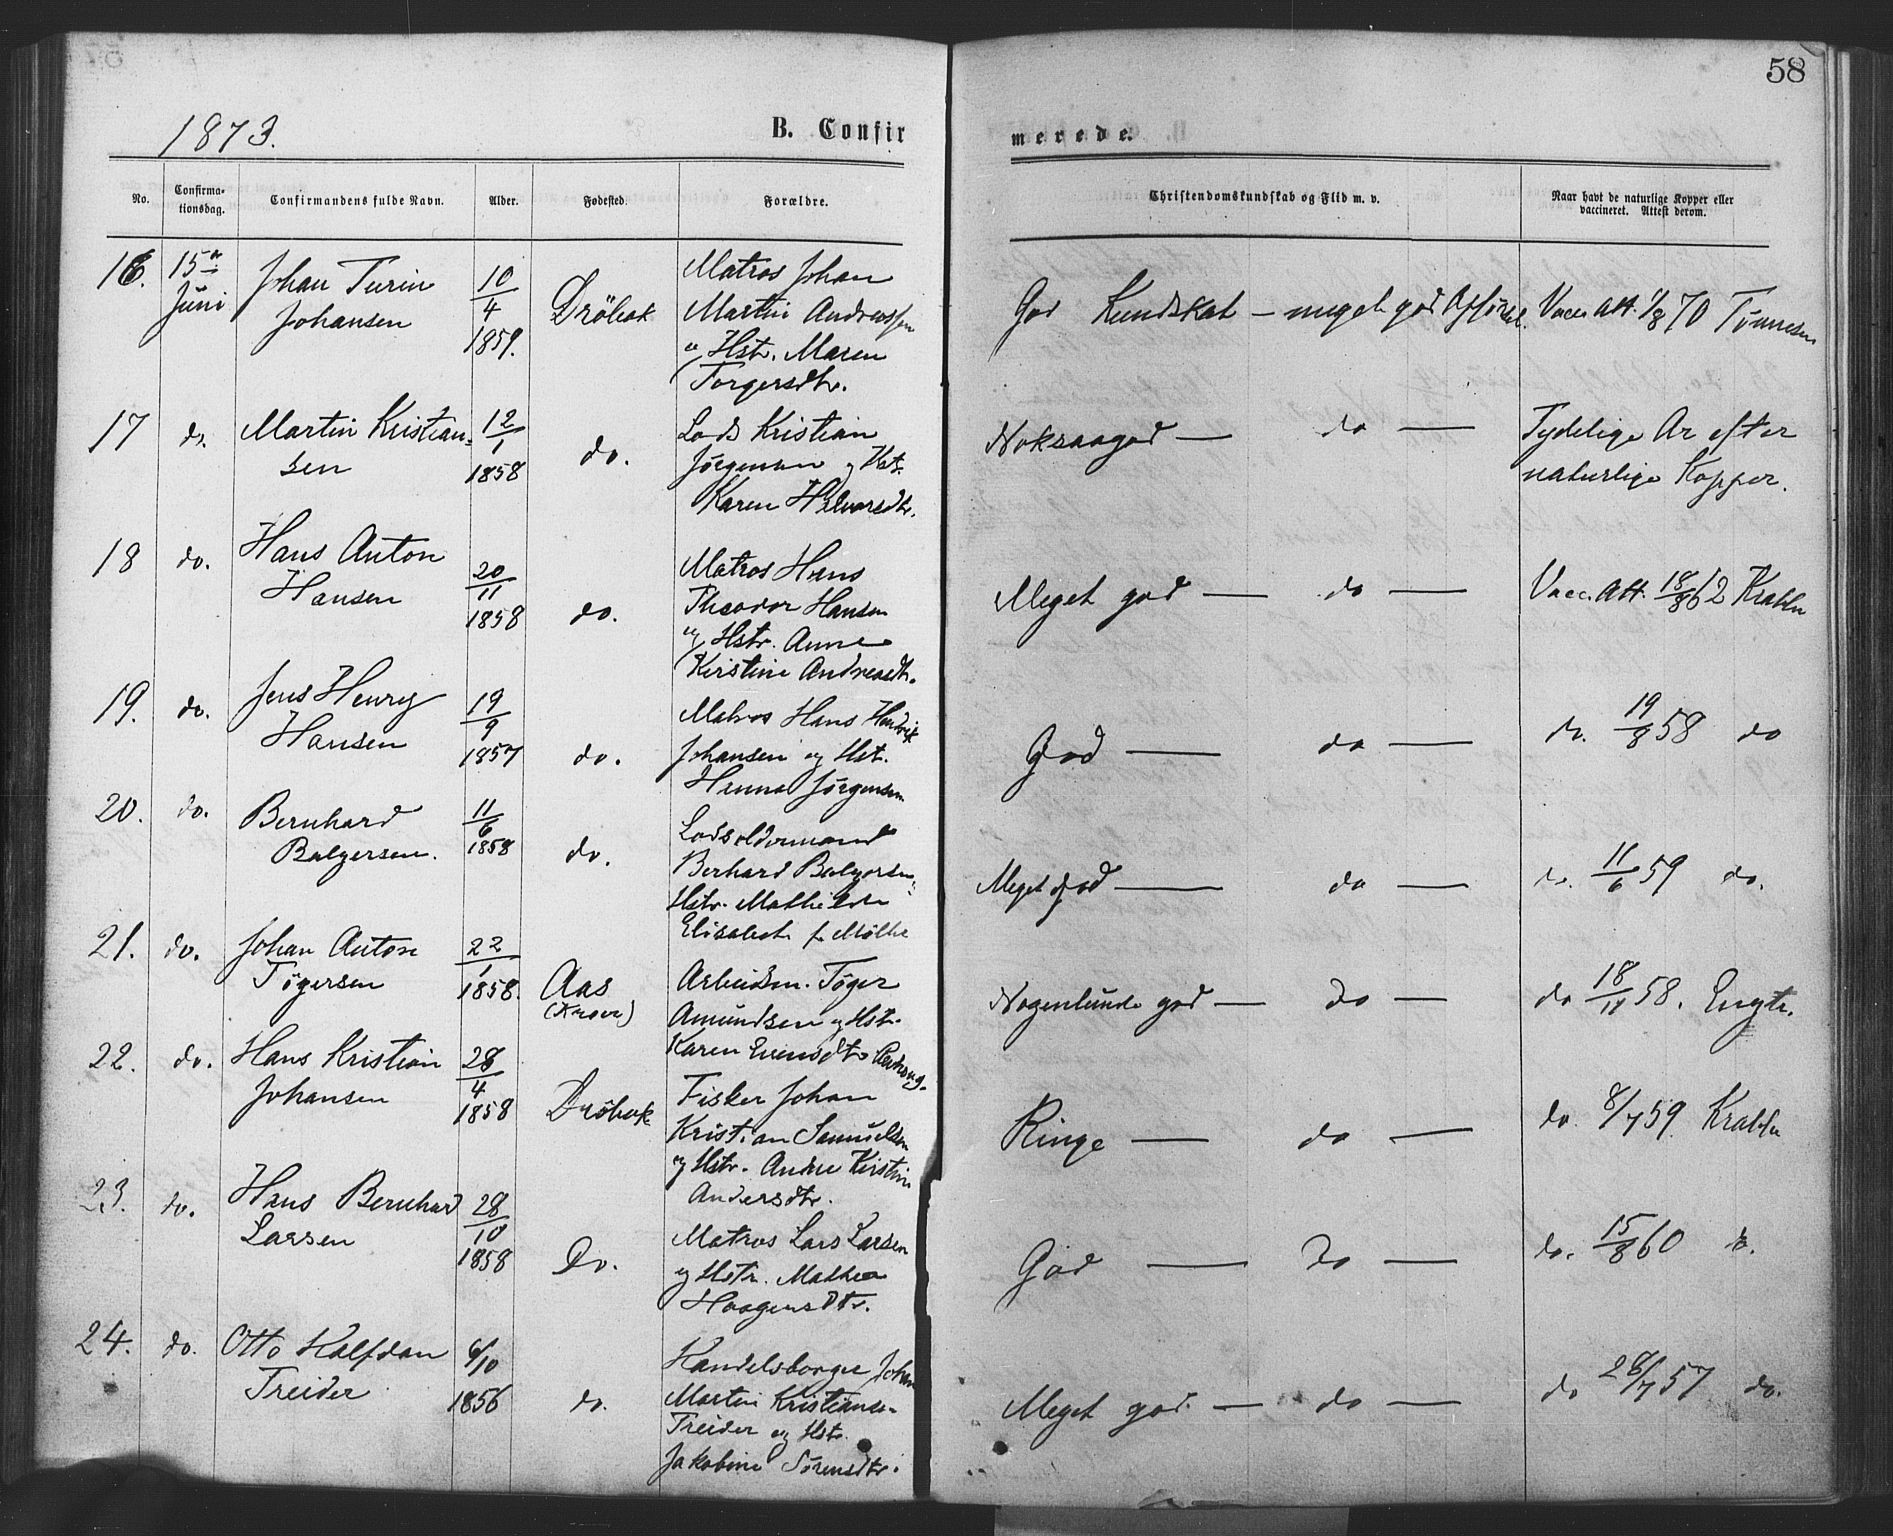 58
1873.
B. Confirmerede.
No.
Confirmationsdag.
Confirmandens fulde Navn.
Alder.
Fødested.
Forældre.
Christendomskundskab og Flid m. v.
Naar havt de naturlige Kopper eller
vaccineret. Attest derom.
16. 15de Juni
Johan Turin
Johansen
10/4
1859.
Dröbak
Matros Johan
Martin Andreassen
og Hstr. Maren
Torgersdtr.
God Kundskab — meget god Opførsel.
Vacc. Att. 1/8 70 Tønnesen
17 do.
Martin Kristian-
sen
12/1
1858
do.
Lods Kristian
Jørgensen og Hst.
Karen Halvorsdtr.
Noksaagod — do —
Tydelige Ar efter
naturlige Kopper.
18 do.
Hans Anton
Hansen
20/11
1858
do.
Matros Hans
Theodor Hansen
og Hstr. Anne
Kirstine Andreasdtr.
Meget god — do —
Vacc. Att. 18/8 62 Krabbe
19. do.
Jens Henry
Hansen
19/9
1857
do.
Matros Hans Hendrik
Johansen og Hst.
Hanna Jørgensen
God — do —
do. 19/8 58 do
20. do.
Bernhard
Balgersen.
11/6
1858
do.
Lodsoldermand
Berhard Balgersen
Hstr. Mathilde
Elisabeth f. Møller
Meget god — do —
do. 11/6 59 do.
21. do.
Johan Anton
Tögersen
22/1
1858.
Aas
(Kroer)
Arbeidsm. Töger
Amundsen og Hstr.
Karen Evensdtr.
Nogenlunde god — do —
do 18/11 58. Engtr.
22. do.
Hans Kristian
Johansen
28/4
1858
Dröbak
Fisker Johan
Kristian Samuelsen
og Hstr. Andrine Kirstine
Andersdtr.
Ringe — do —
do. 8/7 59. Krabbe
23. do.
Hans Bernhard
Larsen
28/10
1858
Do.
Matros Lars Larsen
og Hstr. Mathea
Haagensdtr.
God — Do —
do. 15/8 60 do.
24. do.
Otto Halfdan
Treider
6/10
1856
do.
Handelsborger Johan
Martin Kristiansen
Treider og Hstr.
Jakobine Sörensdtr.
Meget god. — do —
do 28/7 57 do.